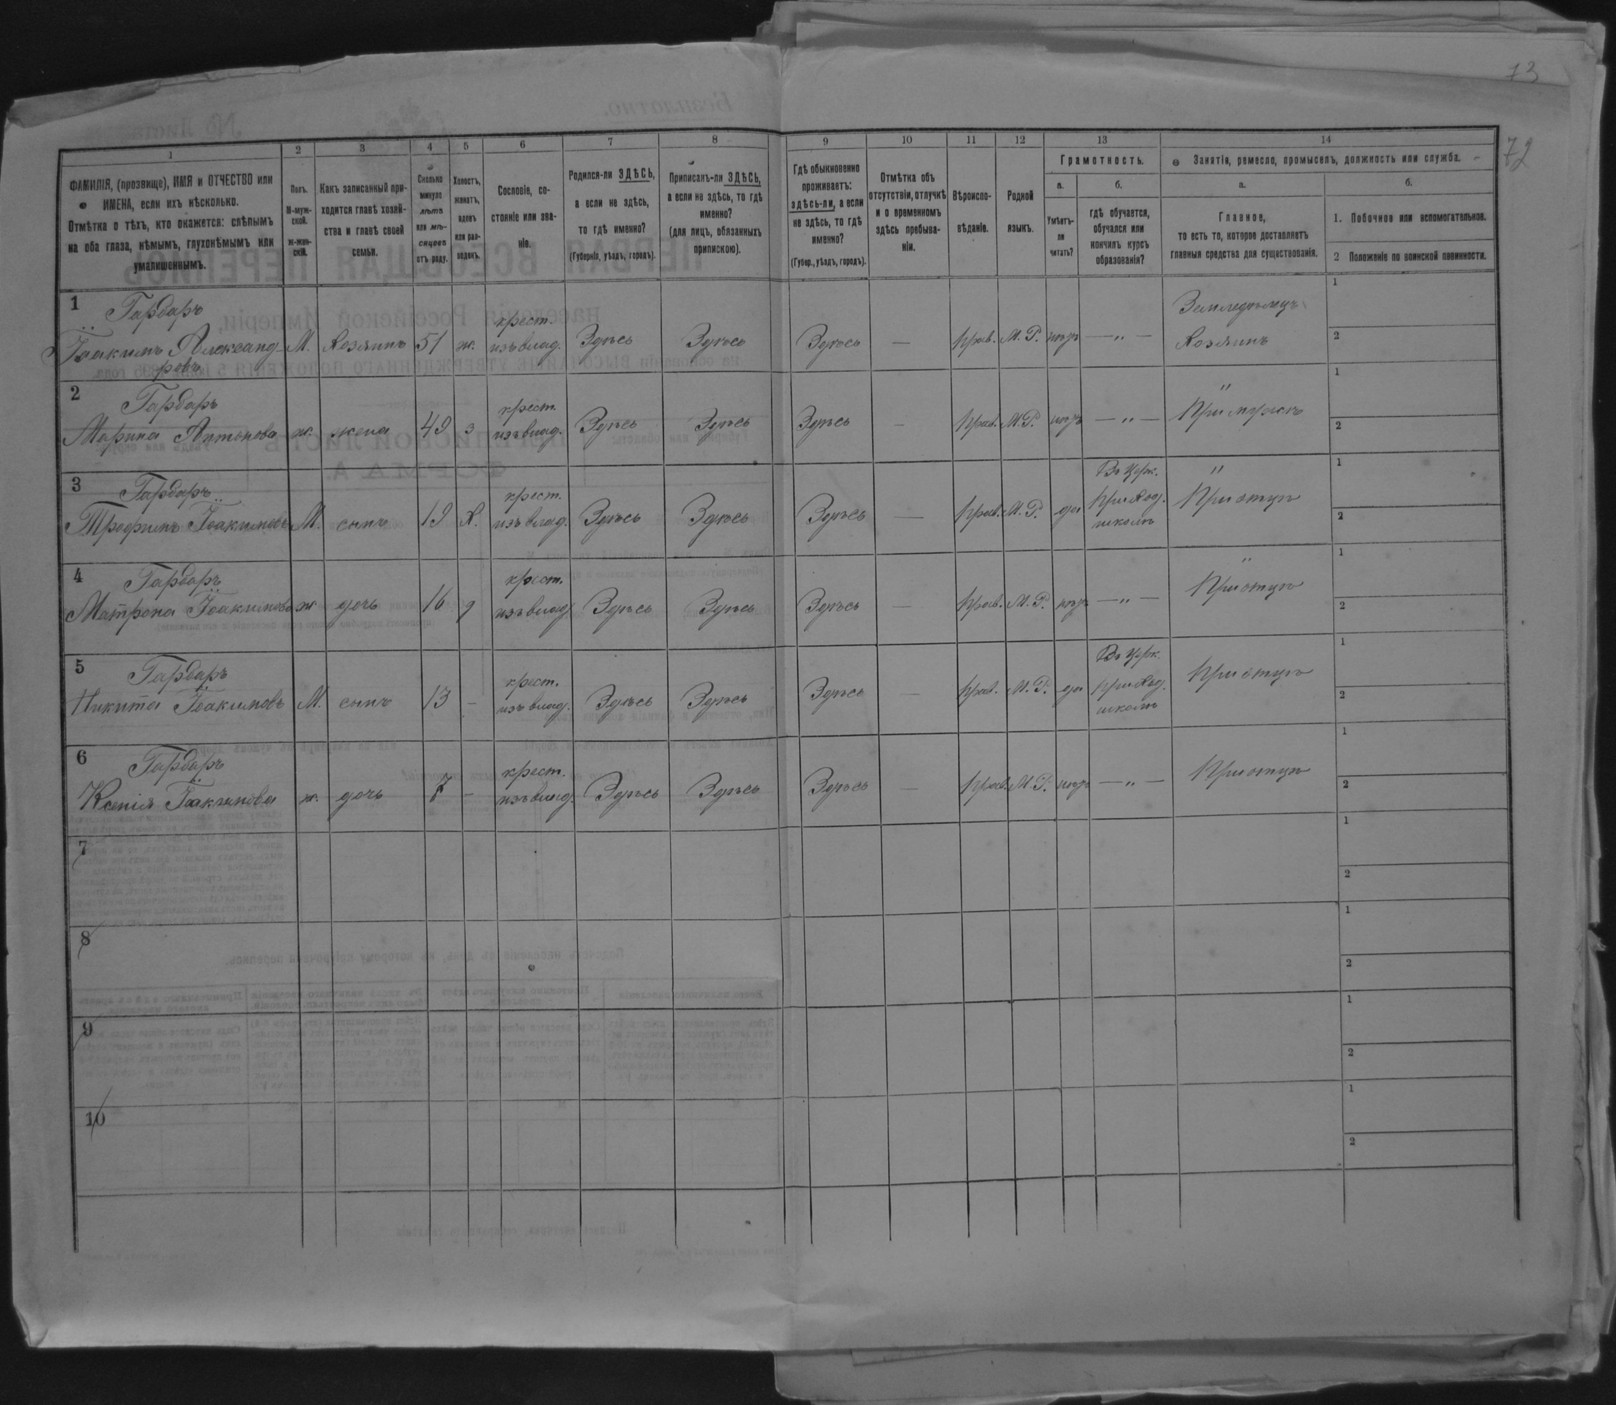 73
72
1
2
3
4
5
6
7
8
9
10
11
12
13
14
ФАМИЛІЯ, (прозвище), ИМЯ и ОТЧЕСТВО или
ИМЕНА, если ихъ нѣсколько.
Отмѣтка о тѣхъ, кто окажется: слѣпымъ
на оба глаза, нѣмымъ, глухонѣмымъ или
умалишоннымъ.
Полъ.
М-муж-
ской.
Ж-жен-
скій.
Какъ записанный при-
ходится главѣ хозяй-
ства и главѣ своей
семьи.
Сколько
минуло
лѣтъ
или мѣ-
сяцевъ
отъ роду.
Холостъ,
женатъ,
вдовъ
или раз-
веденъ.
Сословіе, со-
стояніе или зва-
ніе.
Родился-ли ЗДѢСЬ,
а если не здѣсь,
то гдѣ именно?
(Губернія, уѣздъ, городъ).
Приписанъ-ли ЗДѢСЬ,
а если не здѣсь, то гдѣ
именно?
(для лицъ, обязанныхъ
припискою).
Гдѣ обыкновенно
проживаетъ:
здѣсь-ли, а если
не здѣсь, то гдѣ
именно?
(Губер., уѣздъ, городъ).
Отмѣтка объ
отсутствіи, отлучкѣ
и о временномъ
здѣсь пребыва-
ніи.
Вѣроиспо-
вѣданіе.
Родной
языкъ.
Грамотность.
а.
Умѣетъ-
ли
читать?
б.
гдѣ обучается,
обучался или
кончилъ курсъ
образованія?
Занятія, ремесло, промыселъ, должность или служба.
а.
Главное,
то есть то, которое доставляетъ
главныя средства для существованія.
б.
1. Побочное или вспомогательное.
2 Положеніе по воинской повинности.
1
Гарбаръ
Іоакимъ Александ-
ровъ
М. Хозяинъ 51 ж. крест. изъ влад. Здѣсь Здѣсь Здѣсь — прав. М. Р. нѣтъ — „ — Земледѣлецъ Хозяинъ 1 2
2
Гарбаръ
Марина Антонова ж. жена 49 з крест. изъ влад. Здѣсь Здѣсь Здѣсь — прав. М. Р. нѣтъ — „ — „ При мужѣ 1 2
3
Гарбаръ
Трофимъ Іоакимовъ М. сынъ 19 х. крест. изъ влад. Здѣсь Здѣсь Здѣсь — прав. М. Р. да Въ церк. приход. школѣ „ При отцѣ 1 2
4
Гарбаръ
Матрона Іоакимова ж дочь 16 д крест. изъ влад. Здѣсь Здѣсь Здѣсь — прав. М. Р. нѣтъ — „ — „ При отцѣ 1 2
5
Гарбаръ
Никита Іоакимовъ М. сынъ 13 — крест. изъ влад. Здѣсь Здѣсь Здѣсь — прав. М. Р. да Въ церк. приход. школѣ При отцѣ 1 2
6
Гарбаръ
Ксенія Іоакимова ж. дочь 7 — крест. изъ влад. Здѣсь Здѣсь Здѣсь — прав. М. Р. нѣтъ — „ — При отцѣ 1 2
7 1 2
8 1 2
9 1 2
10 1 2